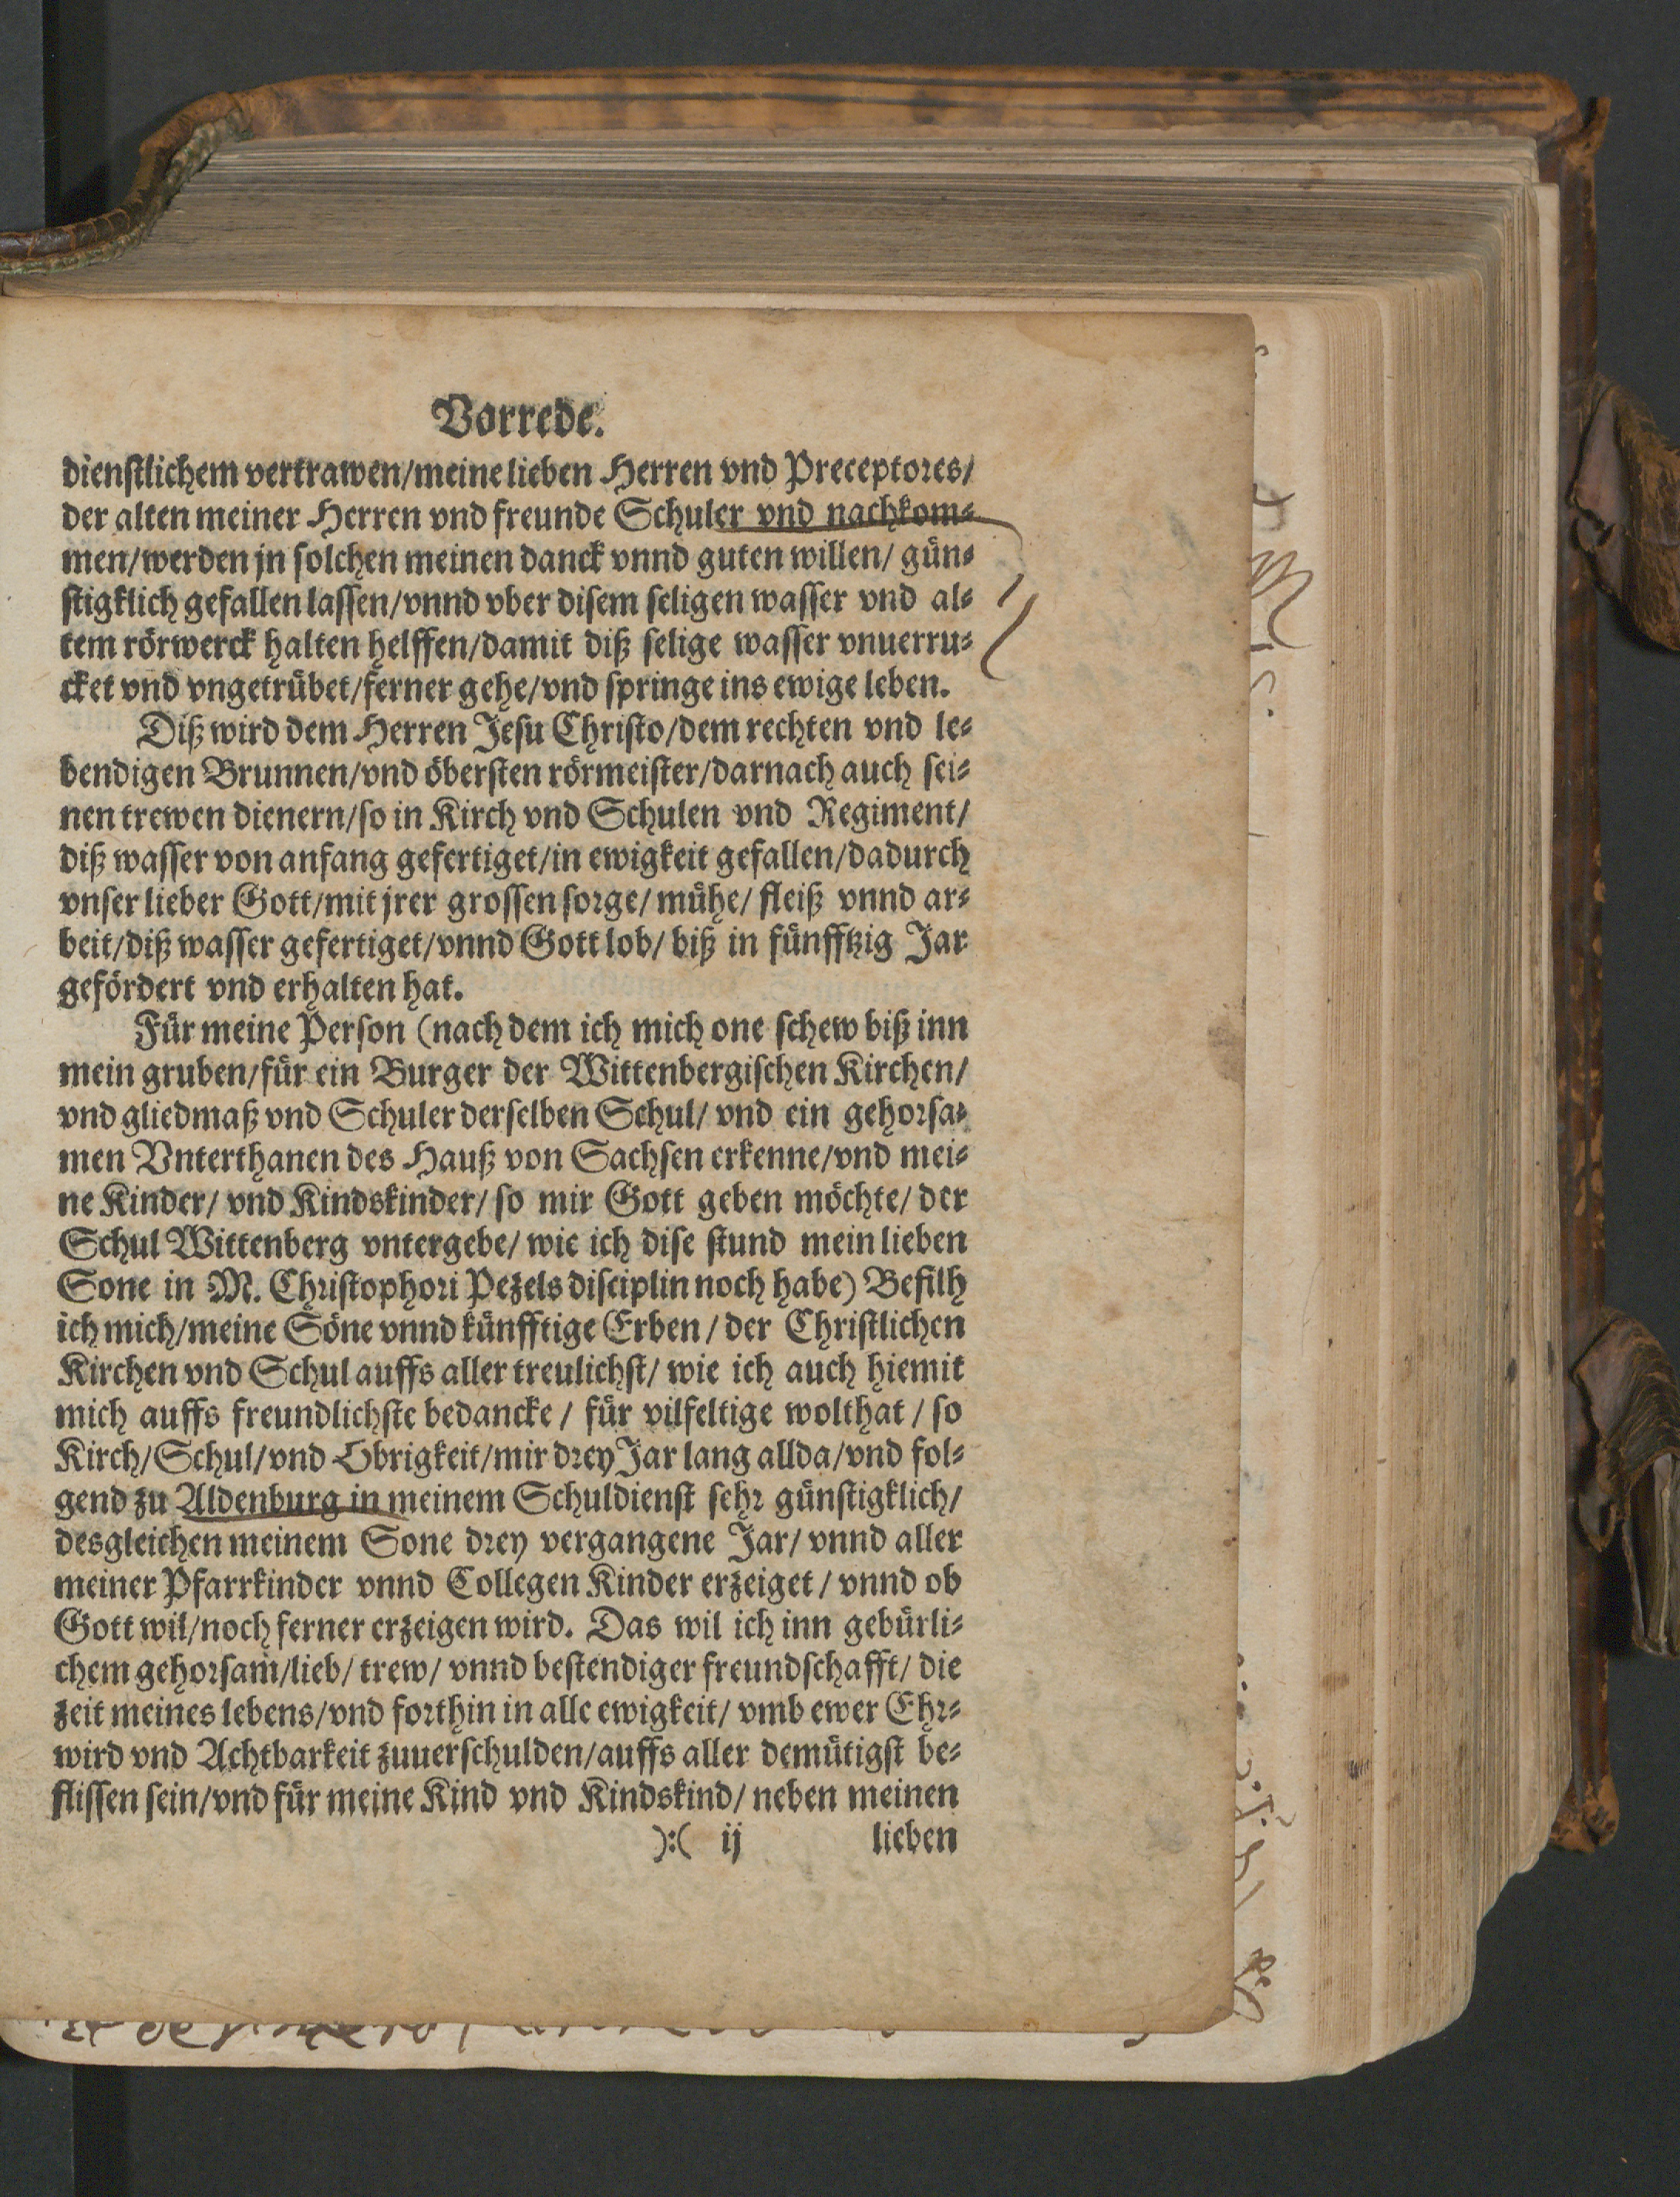 Vorrede.
dienstlichem vertrawen/meine lieben Herren vnd Preceptores/
der alten meiner Herren vnd freunde Schuler vnd nachkom⸗
men/werden jn solchen meinen danck vnnd guten willen/ gün⸗
stigklich gefallen lassen/vnnd vber disem seligen wasser vnd al⸗
tem rörwerck halten helffen/damit diß selige wasser vnuerru⸗
cket vnd vngetrübet/ferner gehe/vnd springe ins ewige leben.
Diß wird dem Herren Jesu Christo/dem rechten vnd le⸗
bendigen Brunnen/vnd öbersten rörmeister/darnach auch sei⸗
nen trewen dienern/so in Kirch vnd Schulen vnd Regiment/
diß wasser von anfang gefertiget/in ewigkeit gefallen/dadurch
vnser lieber Gott/mit jrer grossen sorge/ mühe/ fleiß vnnd ar⸗
beit/diß wasser gefertiget/vnnd Gott lob/ biß in fünfftzig Jar
gefördert vnd erhalten hat.
Für meine Person (nach dem ich mich one schew biß inn
mein gruben/für ein Burger der Wittenbergischen Kirchen/
vnd gliedmaß vnd Schuler derselben Schul/ vnd ein gehorsa⸗
men Vnterthanen des Hauß von Sachsen erkenne/vnd mei⸗
ne Kinder/ vnd Kindskinder/ so mir Gott geben möchte/ der
Schul Wittenberg vntergebe/ wie ich dise stund mein lieben
Sone in M. Christophori Pezels disciplin noch habe) Befilh
ich mich/meine Söne vnnd künfftige Erben / der Christlichen
Kirchen vnd Schul auffs aller treulichst/ wie ich auch hiemit
mich auffs freundlichste bedancke / für vilfeltige wolthat / so
Kirch/Schul/vnd Obrigkeit/mir drey Jar lang allda/vnd fol⸗
gend zu Aldenburg in meinem Schuldienst sehr günstigklich/
desgleichen meinem Sone drey vergangene Jar/ vnnd aller
meiner Pfarrkinder vnnd Collegen Kinder erzeiget / vnnd ob
Gott wil/noch ferner erzeigen wird. Das wil ich inn gebürli⸗
chem gehorsam/lieb/ trew/ vnnd bestendiger freundschafft/ die
zeit meines lebens/vnd forthin in alle ewigkeit/ vmb ewer Ehr⸗
wird vnd Achtbarkeit zuuerschulden/auffs aller demütigst be⸗
flissen sein/vnd für meine Kind vnd Kindskind/ neben meinen
):( ij lieben